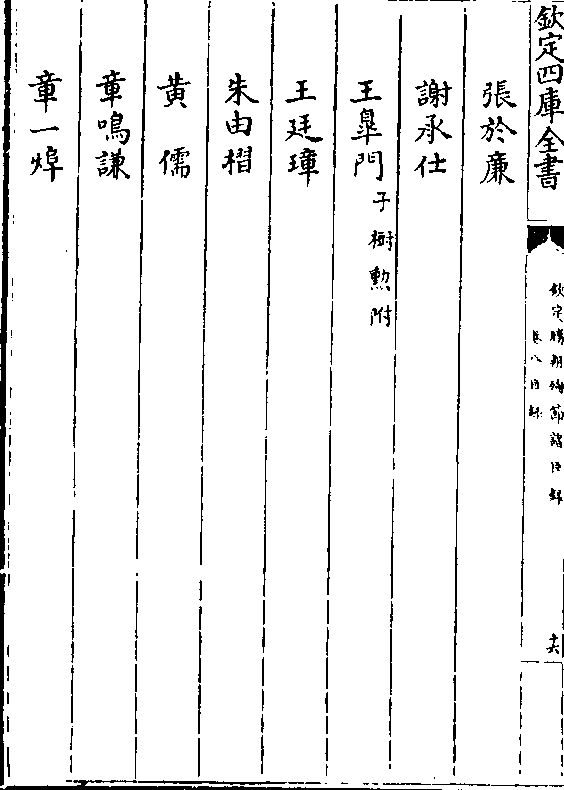 欽定四庫全書
欽定勝朝殉節諸臣錄
卷八目錄
十六
張於廉
謝承仕
王臯門子樹勲附
王廷璋
朱由榗
黄儒
章鳴謙
章一焯